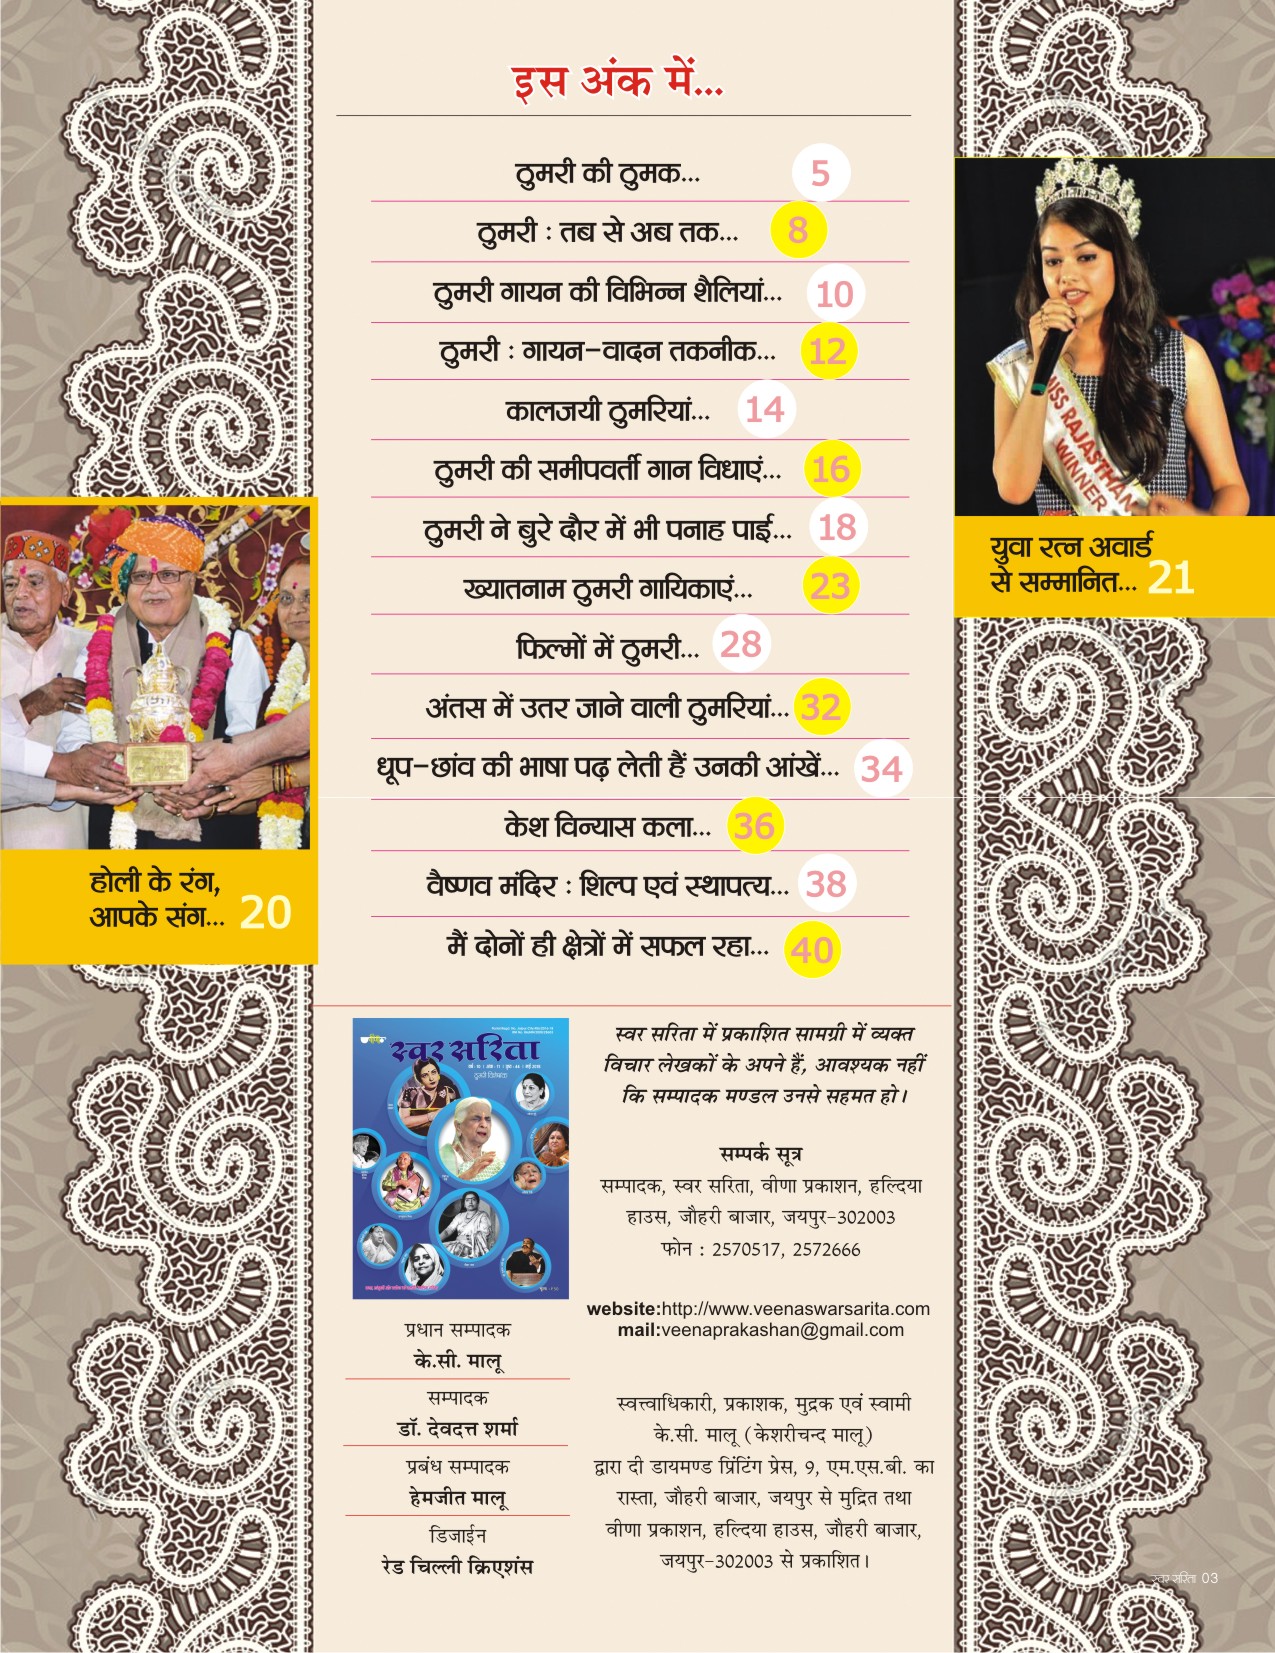 इस अंक में...
ठुमरी की ठुमक... 5
ठुमरी : तब से अब तक... 8
ठुमरी गायन की विभिन्न शैलियां... 10
ठुमरी : गायन-वादन तकनीक... 12
कालजयी ठुमरियां... 14
ठुमरी की समीपवर्ती गान विधाएं... 16
ठुमरी ने बुरे दौर में भी पनाह पाई... 18
ख्यातनाम ठुमरी गायिकाएं... 23
फिल्मों में ठुमरी... 28
अंतस में उतर जाने वाली ठुमरियां... 32
धूप-छांव की भाषा पढ़ लेती हैं उनकी आंखें... 34
केश विन्यास कला... 36
वैष्णव मंदिर : शिल्प एवं स्थापत्य... 38
मैं दोनों ही क्षेत्रों में सफल रहा... 40
MISS RAJASTHAN
WINNER
युवा रत्न अवार्ड
से सम्मानित... 21
होली के रंग,
आपके संग... 20
स्वर सरिता
ठुमरी विशेषांक
प्रधान सम्पादक
के.सी. मालू
सम्पादक
डॉ. देवदत्त शर्मा
प्रबंध सम्पादक
हेमजीत मालू
डिजाईन
रेड चिल्ली क्रिएशंस
स्वर सरिता में प्रकाशित सामग्री में व्यक्त
विचार लेखकों के अपने हैं, आवश्यक नहीं
कि सम्पादक मण्डल उनसे सहमत हो।
सम्पर्क सूत्र
सम्पादक, स्वर सरिता, वीणा प्रकाशन, हल्दिया
हाउस, जौहरी बाजार, जयपुर-302003
फोन : 2570517, 2572666
website:http://www.veenaswarsarita.com
mail:veenaprakashan@gmail.com
स्वत्त्वाधिकारी, प्रकाशक, मुद्रक एवं स्वामी
के.सी. मालू (केशरीचन्द मालू)
द्वारा दी डायमण्ड प्रिंटिंग प्रेस, 9, एम.एस.बी. का
रास्ता, जौहरी बाजार, जयपुर से मुद्रित तथा
वीणा प्रकाशन, हल्दिया हाउस, जौहरी बाजार,
जयपुर-302003 से प्रकाशित।
स्वर सरिता 03